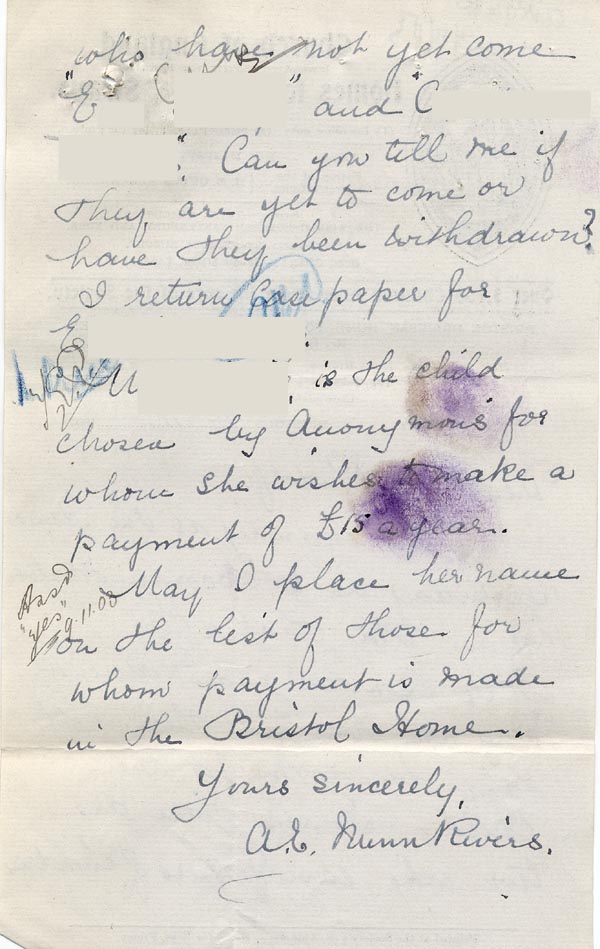 who have not yet come
"E C " and C
". Can you tell me if
they are yet to come or
have they been withdrawn?
I return Case paper for
E
M is the child
chosen by 'Anonymous' for
whom she wishes to make a
payment of £15 a year.
Assd
"yes"
9.11.08
May I place her name
on the list of those for
whom payment is made
in the Bristol Home.
Yours sincerely,
A.E. Nunn Rivers.